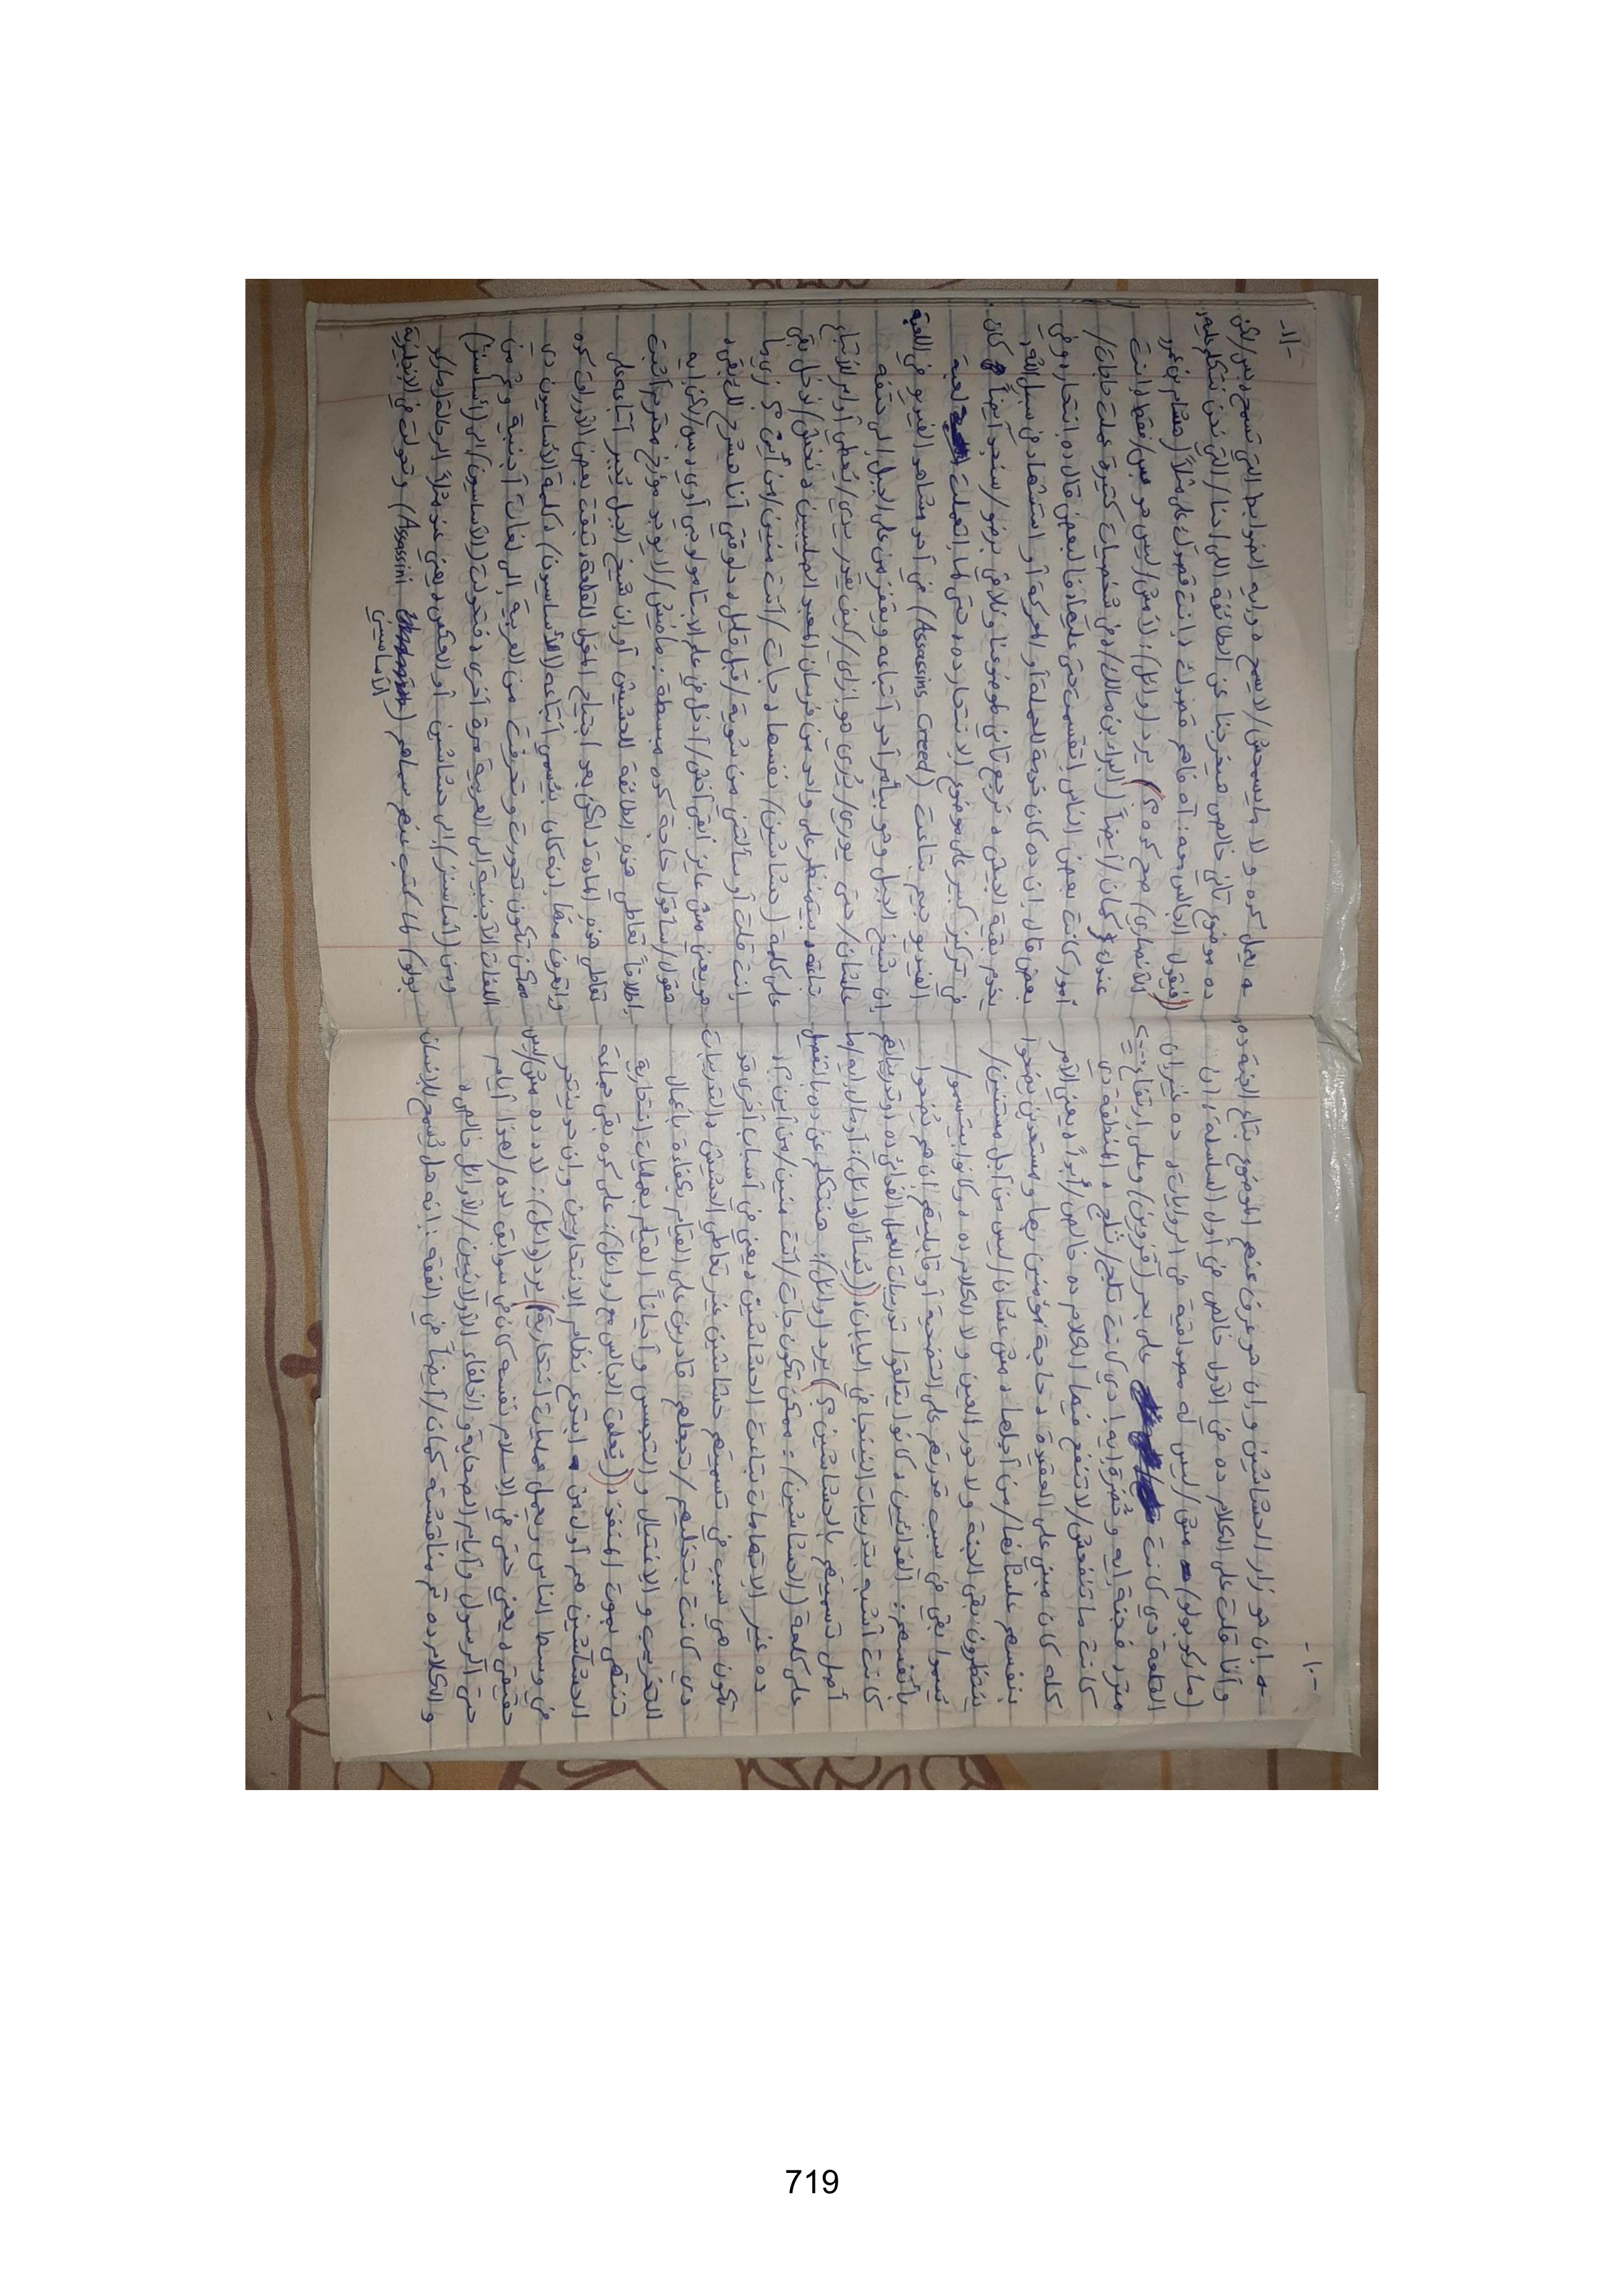 -١٠-
ـه إن هو زار الحشاشين وإن هو عرف عنهم الموضوع بتاع الجنة ده،
وأنا قلت على الكلام ده في الأول خالص في أول السلسلة، إن
(ماركو بولو) مش/ليس له مصداقية في الروايات، ده غير إن
القلعة دي كانت على بحر (قزوين) وعلى ارتفاع
متر، فجنة إيه وخضرة إيه! دي كانت تلج/ثلج، المنطقة دي
كانت ما تنفعش/لا تنفع فيها الكلام ده خالص/أبداً، يعني الأمر
كله كان مبني على العقيدة، حاجة مؤمنين بها ومستعدين يضحوا
بنفسهم علشانها/من أجلها، مش عشان/ليس من أجل مستنيين/
ينتظرون بقى الجنة ولا حور العين ولا الكلام ده، وكانوا بيتسموا/
يُسموا بقى في سبب قدرتهم على التضحية أو قابليتهم إن هم يُضحوا
بأنفسهم: الفدائيين، كانوا يتلقوا تدريبات للعمل الفدائي ده، وتدريباتهم
كانت أشبه بتدريبات النينجا في اليابان، ((يُسأل (وائل): أومال إيه/ما
أصل تسميتهم بالحشاشين؟)) يرد (وائل): هنتكلم عن ده بالتفصيل
على كلمة (الحشاشين): ممكن تكون جات/أتت منين/من أين؟،
ده غير الاتهامات بتاعت الحشاشين، يعني في أسباب أخرى قد
تكون هي سبب في تسميتهم حشاشين غير تعاطي الحشيش، التدريبات
دي كانت بتخليهم/تجعلهم قادرين على القيام بكفاءة بأعمال
التخريب والاغتيال والتجسس وأحياناً القيام بعمليات انتحارية
تنتهي بموت المنفذ، ((يُعلق الجالس مع (وائل): على كده بقى جماعة
الحشاشين هم أول من ابتدع نظام الانتحاريين وإن حد ينتحر
في وسط الناس ويعمل عمليات انتحارية)) يرد (وائل): لا، ده مش/ليس
حقيقي، يعني حتى في الإسلام نفسه كان في سوابق لده/لهذا أيام
حتى الرسول وأيام الصحابة والخلفاء الأولانيين/الأوائل خالص،
والكلام ده تم مناقشته كمان/أيضاً في الفقه: إنه هل يُسمح للإنسان
-١١-
ـه يعمل كده ولا ما يسمحش/لا يسمح، وإيه الضوابط التي تسمح بس/لكن
ده موضوع تاني خالص هيخرجنا عن الطائفة اللي احنا/التي نحن نتكلم عليها،
((فيقول الجالس معه: آه فاهم قصدك، إنت قصدك على مثلاً (هشام بن عمرو
الأنصاري) صح كده؟)) يرد (وائل): لا مش/ليس هو بس/فقط، إنت
عندك كمان/أيضاً (البراء بن مالك)، وفي شخصيات كتيرة عملت حاجات/
أمور كانت بعض الناس إتقسمت حتى عليها، فالبعض قال ده إنتحار، وفي
بعض قال إن ده كان خدمة للحملة أو المعركة أو استشهاد في سبيل الله،
يخدم بقية الجيش، نرجع تاني لموضوعنا ونلاقي برضو/سنجد أيضاً كان
في تركيز كبير على موضوع الانتحار ده، حتى لما إتعملت لعبة
الفيديو جيم بتاعت (Assassins Creed) في أحد مشاهد الفيديو في اللعبة
إن شيخ الجبل وهو بيأمر أحد أتباعه ويقفز من على الجبل إلى حتفه
علشان/حتى يوري/يُري هو إزاي/كيف يقدر يدي/يُعطي أوامر للأتباع
بتاعه، بيتمنظر على واحد من فرسان المعبد الصليبيين، نخش/ندخل بقى
على كلمة (حشاشين) نفسها، جات/أتت منين/من أين؟ زي ما
إنت قلت أو سألتني من شوية/قبل قليل، دلوقتي أنا هشرح لك بقى،
هو يعني مش عايز أبقى أخش/أدخل في علم الإيتمولوجي أوي، بس/لكن إيه
هقول/سأقول حاجة كده مبسطة: مافيش/لا يوجد مؤرخ محترم أثبت
إطلاقاً تعاطي هذه الطائفة للحشيش أو إن شيخ الجبل يُجبر أتباعه على
تعاطي هذه المادة، لكن بعد اجتياح المغول للقلعة، تبقت بعض الأوراق كده
واتعرف منها إنه كان يُسمي أتباعه (الأساسيون)، كلمة الأساسيون دي
ممكن تكون تحورت وتحرفت من العربية إلى لغات أجنبية، ثم من
اللغات الأجنبية إلى العربية مرة أخرى، فتحولت (الأساسيون) إلى (أساسنز)
ومن (أساسنز) إلى حشاشين أو العكس، يعني عندك مثلاً الرحالة (ماركو
بولو) لما كتب عنهم سماهم (Assassini) وتحولت في الإنجليزية
الأساسيين